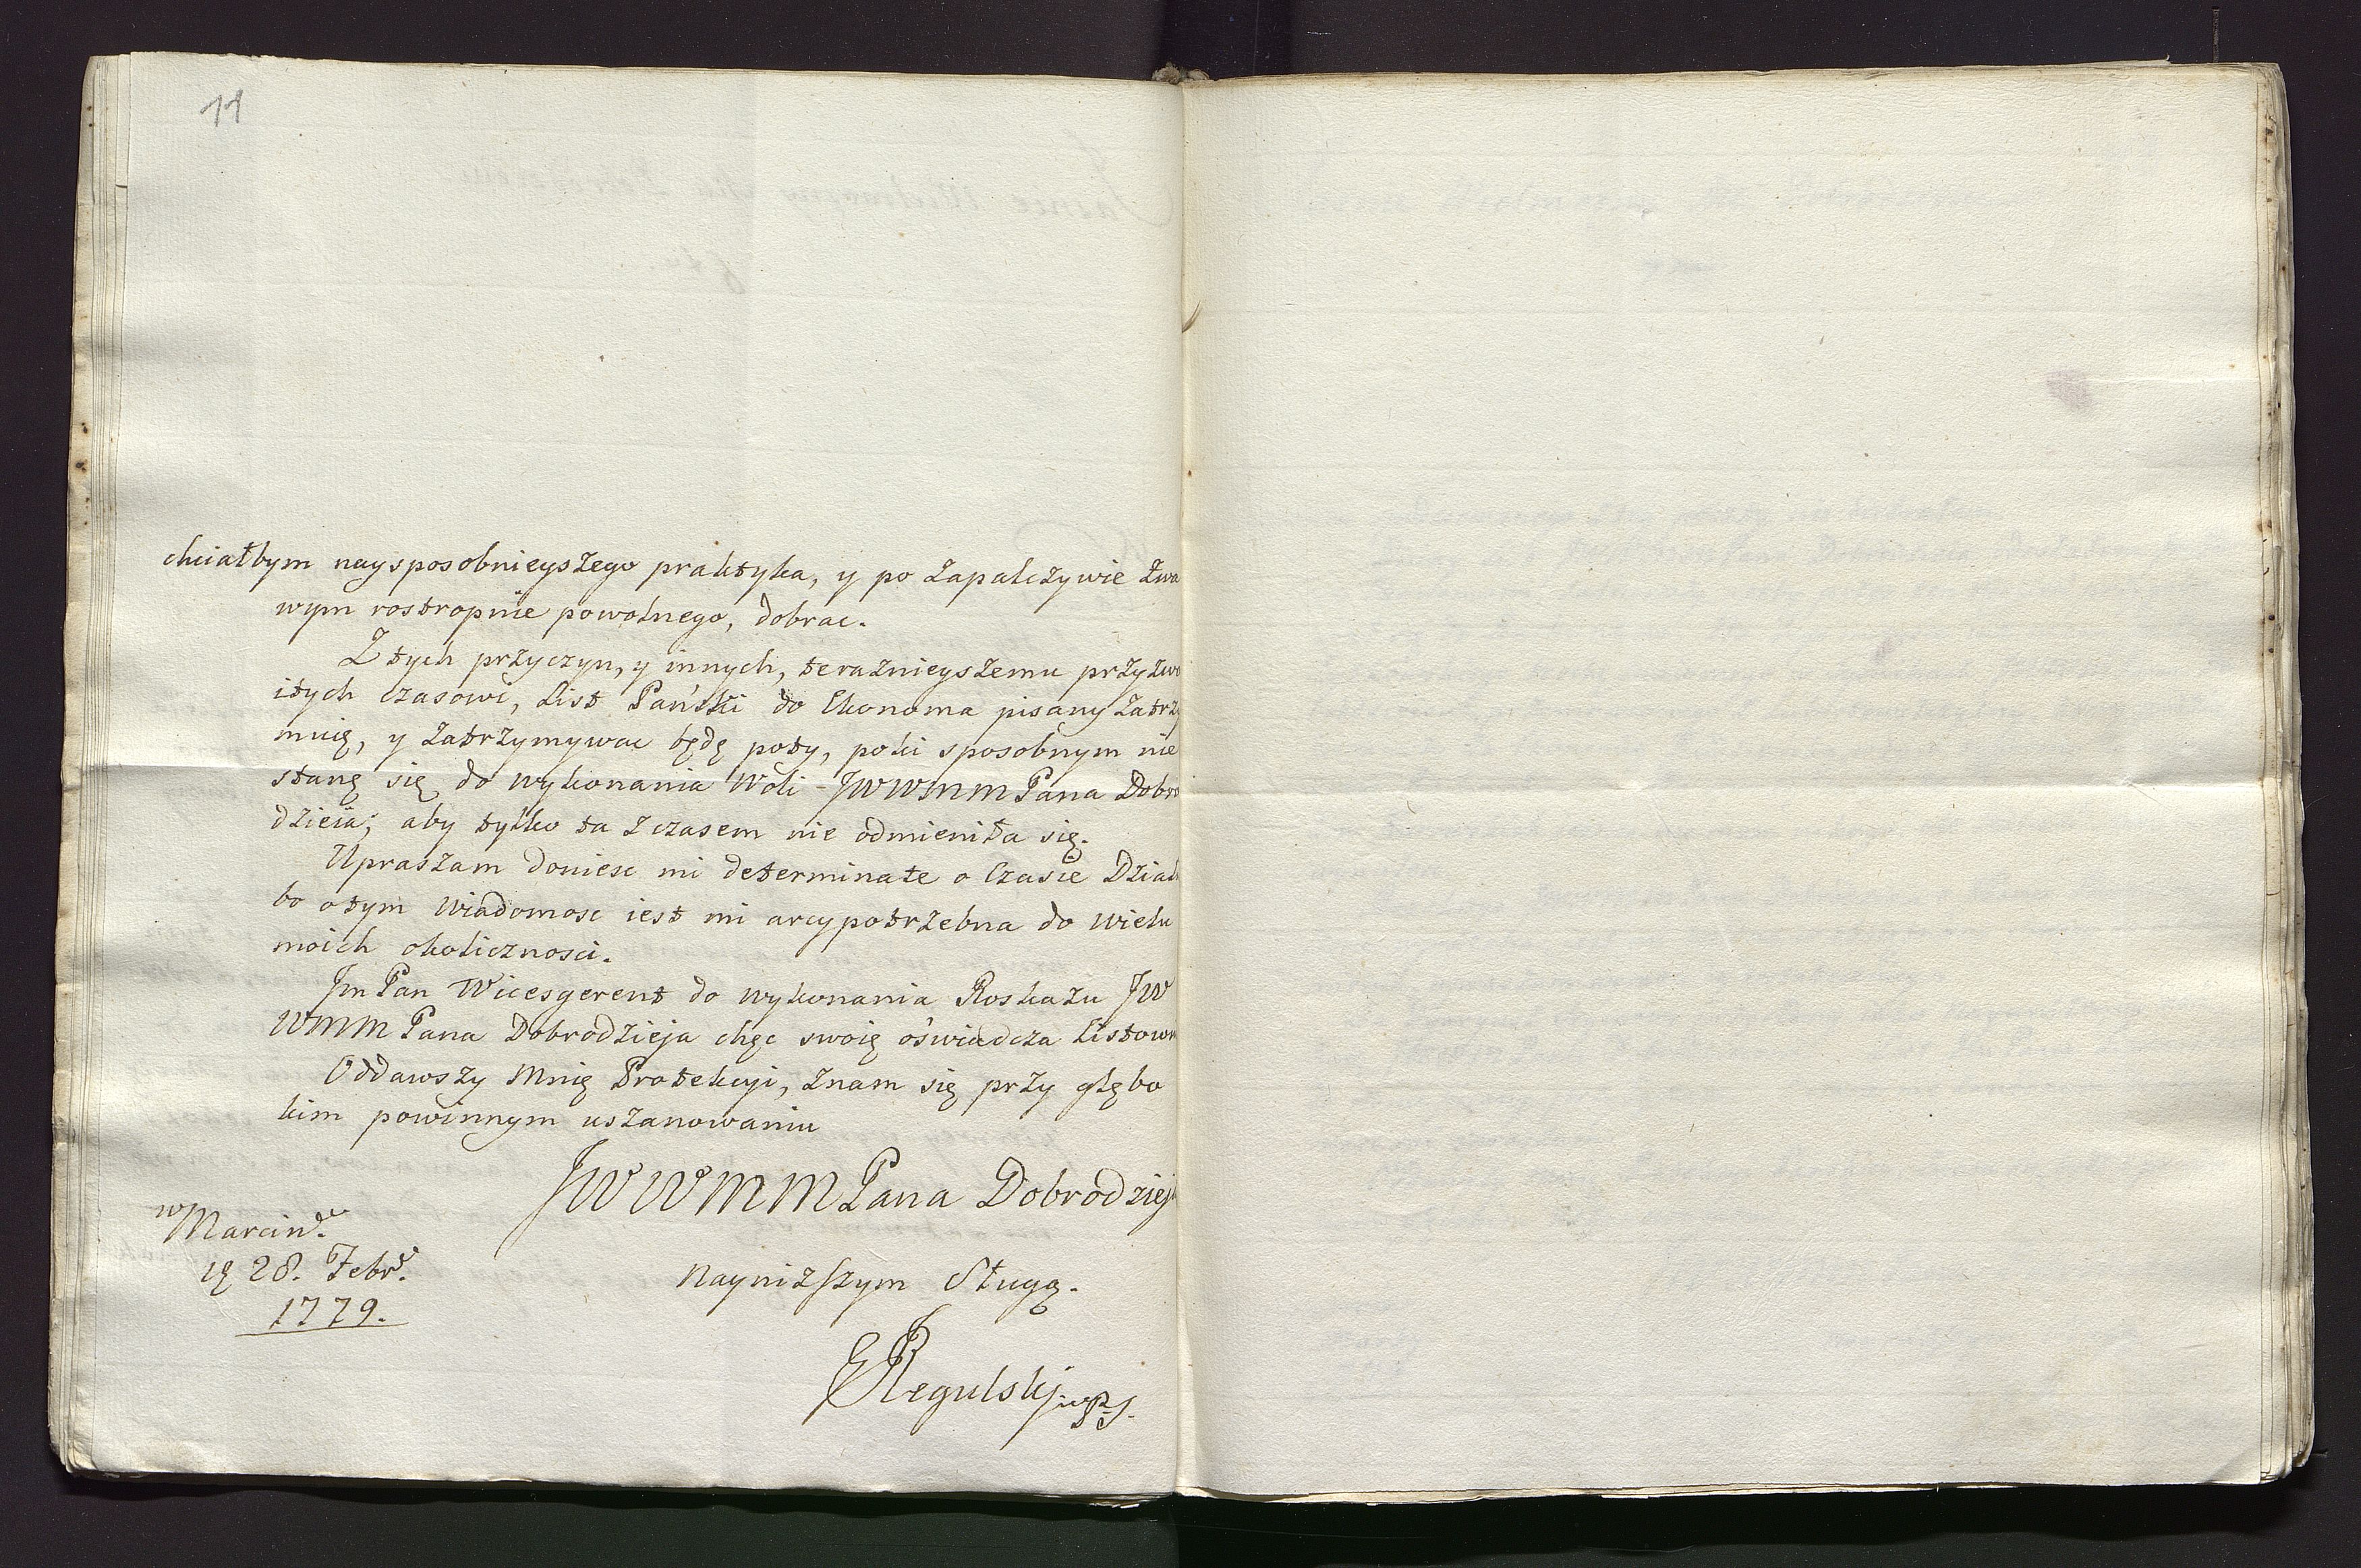 11
chciałbym naysposobnieyszego praktyka, y po zapalczywie żwa
wym rostropnie powolnego, dobrac.
Z tych przyczyn, y innych, teraznieyszemu przyzwo
itych czasowi, List Pański do Ekonoma pisany zatrzy
muię, y zatrzymywac będę poty, poki sposobnym nie
stanę się do wykonania Woli JWWMM Pana Dobro
dzieia; aby tylko ta z czasem nie odmieniła się.
Upraszam doniesc mi determinate o Czasie
bo o tym wiadomosc iest mi arcypotrzebna do wielu
moich okolicznosci.
Jm Pan Wicesgerent do wykonania Roskazu JW
WMM Pana Dobrodzieja chęc swoię oświadcza Listown
Oddawszy Mnię Protekcyi, znam się przy głębo
kim powinnym uszanowaniu
JWWMM Pana Dobrodzieja
w Marcind.
28. Febr.
1779.
Nayniższym Sługą.
E Regulski